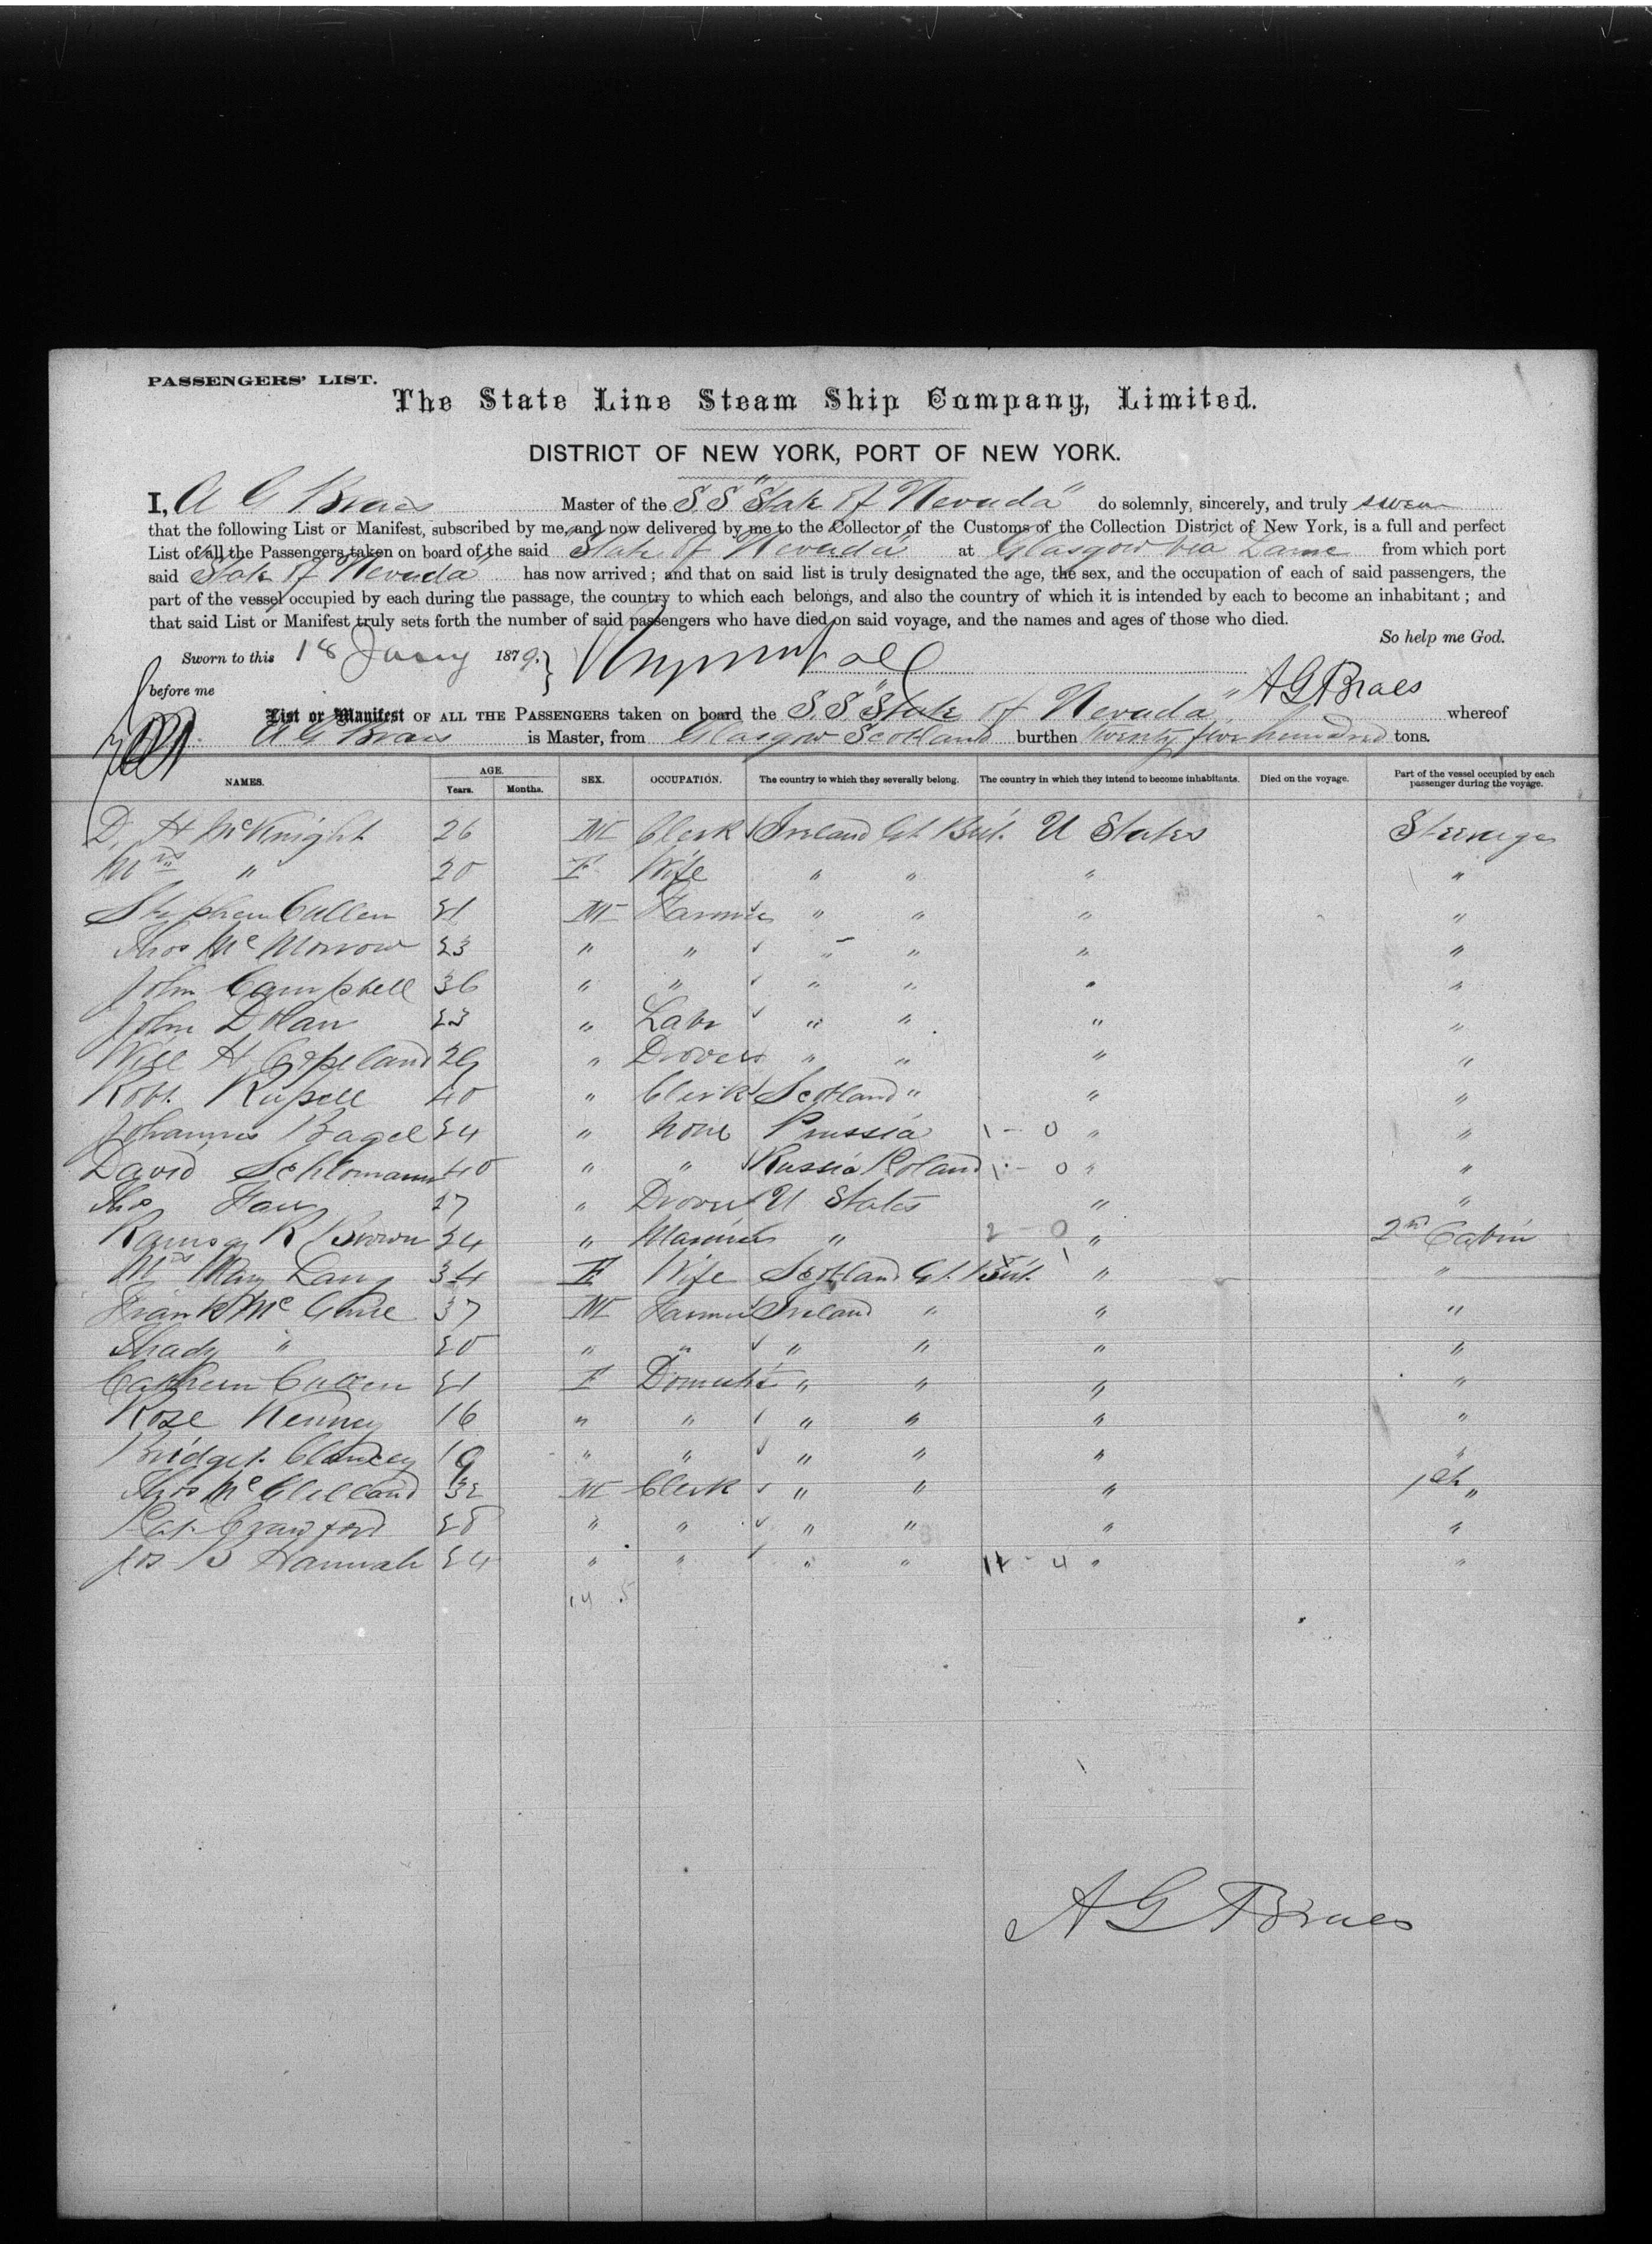 PASSENGERS' LIST.
The State Line Steam Ship Company, Limited.
DISTRICT OF NEW YORK, PORT OF NEW YORK.
I, A G Braes Master of the S.S "State of Nevada" do solemnly, sincerely, and truly swear
that the following List or Manifest, subscribed by me, and now delivered by me to the Collector of the Customs of the Collection District of New York, is a full and perfect
List of all the Passengers taken on board of the said "State of Nevada" at Glasgow via Larne from which port
said State of Nevada" has now arrived; and that on said list is truly designated the age, the sex, and the occupation of each of said passengers, the
part of the vessel occupied by each during the passage, the country to which each belongs, and also the country of which it is intended by each to become an inhabitant; and
that said List or Manifest truly sets forth the number of said passengers who have died on said voyage, and the names and ages of those who died.
So help me God.
Sworn to this 18 Jany 1879.
before me A G Braes
List or Manifest OF ALL THE PASSENGERS taken on board the S.S "State of Nevada" whereof
A G Braes is Master, from Glasgow Scotland burthen Twenty five hundred tons.
NAMES. AGE. Years. Months. SEX. OCCUPATION. The country to which they severally belong. The country in which they intend to become inhabitants. Died on the voyage. Part of the vessel occupied by each passenger during the voyage.
D. H McKnight 26 M Clerk Ireland Gt. Brit. U States Steerage
Mrs " 20 F Wife " " " "
Stephen Cullen 21 M Farmer " " " "
Thos McMorrow 23 " " " " " "
John Campbell 36 " " " " " "
John Dolan 23 " Labr " " " "
Will H Copeland 29 " Drover " " " "
Robt. Russell 40 " Clerk Scotland " " "
Johannes Bagel 24 " None Prussia 1 - 0 " "
David Schlomann 40 " " Russia Poland 1 - 0 " "
Thos 27 " Drover U States " "
R Brown 34 " " 2 - 0 " 2nd Cabin
Mrs Mary Lang 34 F Wife Scotland Gt. Brit. " "
Frank McGuire 37 M Farmer Ireland " " "
Thady " 20 " " " " " "
Cathern Cullen 21 F Domestic " " " "
Rose Kenney 16 " " " " " "
Bridget Clancey 19 " " " " " "
Thos McClelland 32 M Clerk " " " 1st "
Pat. Crawford 28 " " " " " "
Jos. B Hannah 24 " " " " 14 - 4 " "
14 5
A G Braes